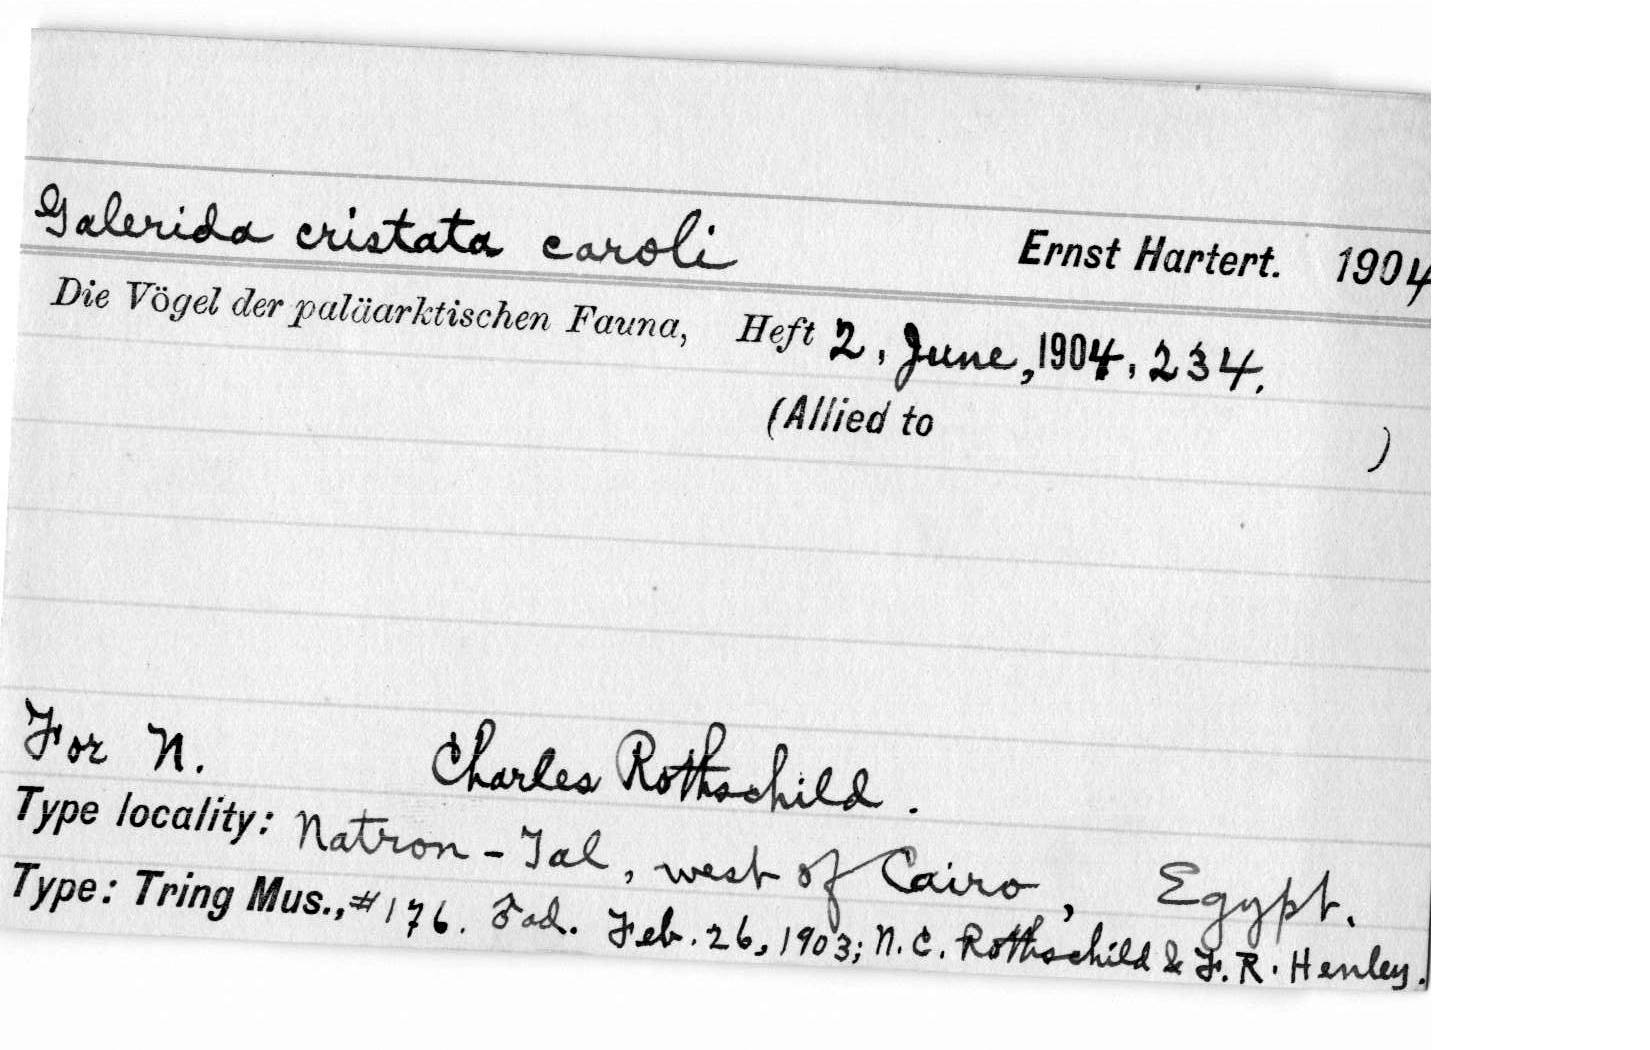 Galerida cristata caroli Ernst Hartert. 1904
Die Vögel der paläarktischen Fauna, Heft 2, June, 1904, 234.
(Allied to )
For N. Charles Rothschild.
Type locality: Natron-Tal, west of Cairo, Egypt.
Type: Tring Mus., #176. ad. Feb. 26, 1903; N. C. Rothschild & F. R. Henley.